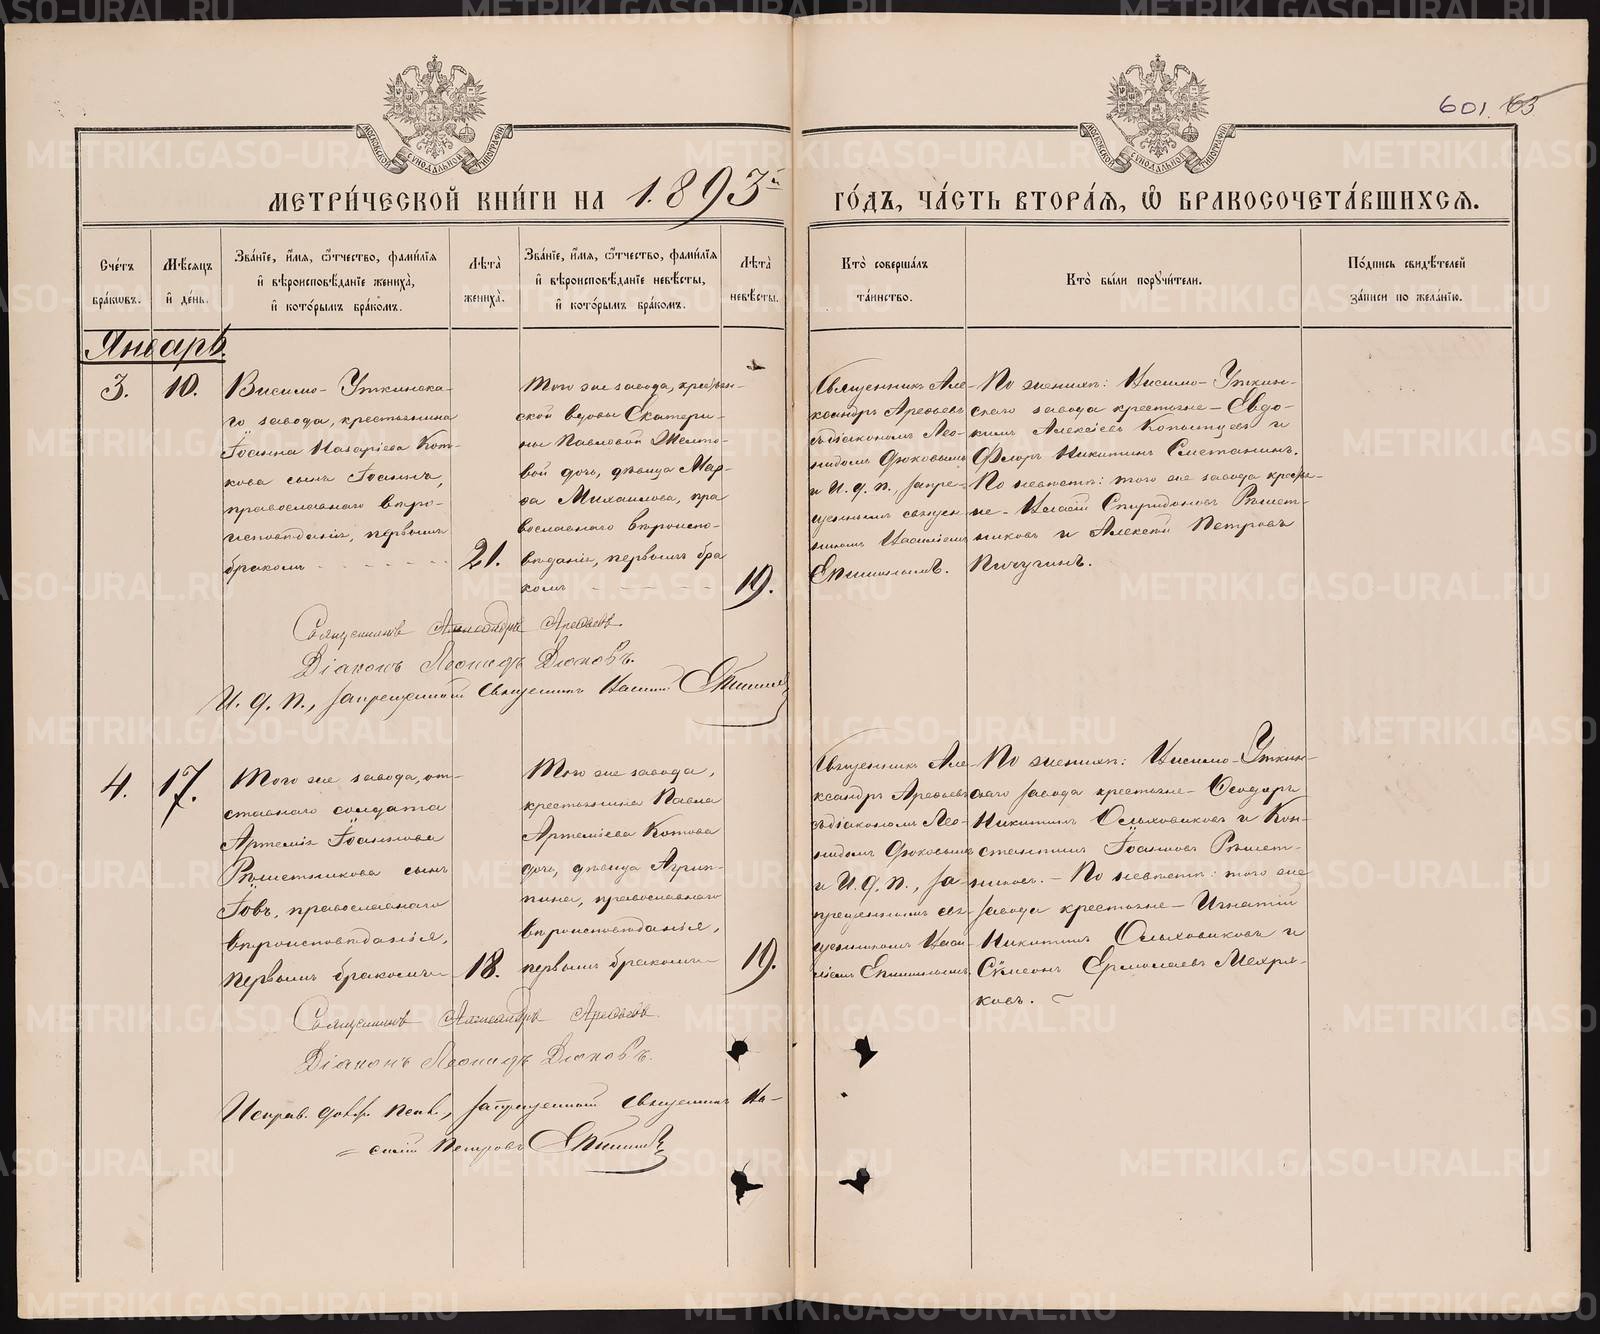 601. 65
МОСКОВСКОЙ СѴНОДАЛЬНОЙ ТИПОГРАФІИ
МОСКОВСКОЙ СѴНОДАЛЬНОЙ ТИПОГРАФІИ
МЕТРИ́ЧЕСКОЙ КНИ́ГИ НА 1893й
ГО́ДЪ, ЧА́СТЬ ВТОРА́Я, Ѡ БРАКОСОЧЕТА́ВШИХСЯ.
Сче́тъ
бра́кωвъ.
Мѣ́сяцъ
и де́нь.
Зва́нїе, и́мя, ѻ́тчество, фами́лїя
и вѣроисповѣ́данїе жениха̀,
и кото́рымъ бра́комъ.
Лѣта̀
жениха̀.
Зва́нїе, и́мя, ѻ́тчество, фами́лїя
и вѣроисповѣ́данїе невѣ́сты,
и кото́рымъ бра́комъ.
Лѣта̀
невѣ́сты.
Кто̀ соверша́лъ
та́инство.
Кто̀ бы́ли порꙋчи́тели.
По́дпись свидѣ́телей
за́писи по жела́нїю.
Январь.
3.
10.
Висимо-Уткинска-
го завода, крестьянина
Іоанна Назаріева Кот-
кова сынъ Іоаннъ,
православнаго вѣро-
исповѣданія, первымъ
бракомъ
21.
Того же завода, крестьян-
ской вдовы Екатери-
ны Павловой Желто-
вой дочь, дѣвица Мар-
ѳа Михаилова, пра
вославнаго вѣроиспо-
вѣданія, первымъ бра
комъ
19.
Священникъ Але-
ксандръ Арефьевъ
съ діакономъ Лео-
нидомъ Дюковымъ
и И. д. п., запре-
щеннымъ священ
никомъ Василіемъ
По женихѣ: Висимо-Уткин-
скаго завода крестьяне - Евдо-
кимъ Алексіевъ Копытцевъ и
Флоръ Никитинъ Сметанинъ.
По невѣстѣ: того же завода крестья-
не - Власій Спиридоновъ Рѣшет-
никовъ и Алексій Петровъ
Пичугинъ.
Священникъ Александръ Арефьевъ.
Діаконъ Леонидъ Дюковъ.
И. д. п., запрещенный священникъ Василій
4.
17.
Того же завода, от-
ставнаго солдата
Артемія Іоаннова
Рѣшетникова сынъ
Іовъ, православнаго
вѣроисповѣданія,
первымъ бракомъ
18.
Того же завода,
крестьянина Павла
Артеміева Котова
дочь, дѣвица Агрип-
пина, православнаго
вѣроисповѣданія,
первымъ бракомъ
19.
Священникъ Але-
ксандръ Арефьевъ
съ діакономъ Лео-
нидомъ Дюковымъ
и И. д. п., за-
прещеннымъ свя-
щенникомъ Васи-
ліемъ
По женихѣ: Висимо-Уткин-
скаго завода крестьяне - Ѳеодоръ
Никитинъ Ольховиковъ и Кон-
стантинъ Іоанновъ Рѣшет-
никовъ. - По невѣстѣ: того же
завода крестьяне - Игнатій
Никитинъ Ольховиковъ и
Сѵмеонъ Ермолаевъ Мехря-
ковъ.
Священникъ Александръ Арефьевъ
Діаконъ Леонидъ Дюковъ.
Исправ. долж. псал., запрещенный священникъ Ва-
силій Петровъ
METRIKI.GASO-URAL.RU